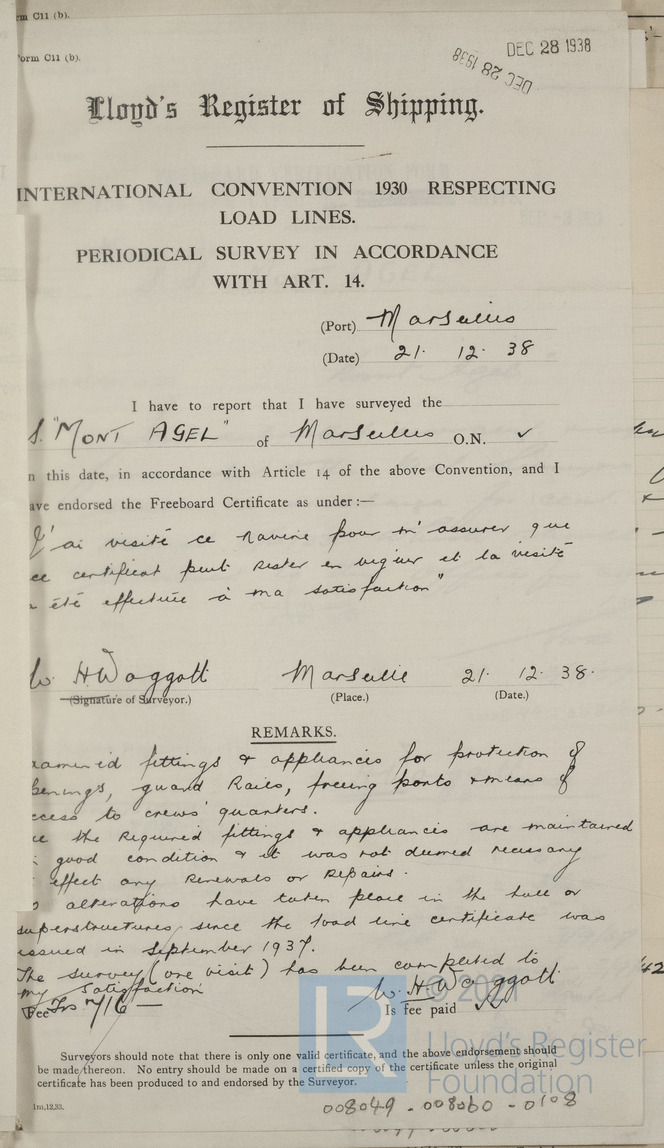 rm C11 (b).
orm C11 (b).
DEC 28 1938
DEC 28 1938
Lloyd's Register of Shipping.
INTERNATIONAL CONVENTION 1930 RESPECTING
LOAD LINES.
PERIODICAL SURVEY IN ACCORDANCE
WITH ART. 14.
(Port) Marseilles
(Date) 21. 12. 38
I have to report that I have surveyed the
S. "MONT AGEL" of Marseilles O.N. ✓
n this date, in accordance with Article 14 of the above Convention, and I
ave endorsed the Freeboard Certificate as under:—
J'ai visité ce navire pour m'assurer que
ce certificat peut rester en vigueur et la visite
a été effectuée à ma satisfaction"
W. H Waggott Marseille 21. 12. 38.
(Signature of Surveyor.) (Place.) (Date.)
REMARKS.
xamined fittings & appliances for protection of
penings, guard Rails, freeing ports & means of
ccess to crews' quarters.
the Required fittings & appliances are maintained
good condition & it was not deemed necessary
effect any Renewals or Repairs.
alterations have taken place in the hull or
superstructures since the load line certificate was
issued in September 1937.
The survey (one visit) has been completed to
my satisfaction
W. H. Waggott
Fee Frs 716 — Is fee paid
Surveyors should note that there is only one valid certificate, and the above endorsement should
be made thereon. No entry should be made on a certified copy of the certificate unless the original
certificate has been produced to and endorsed by the Surveyor.
1m,12,33.
© 2021
LR
Lloyd's Register
Foundation
008049 - 008060 - 0108